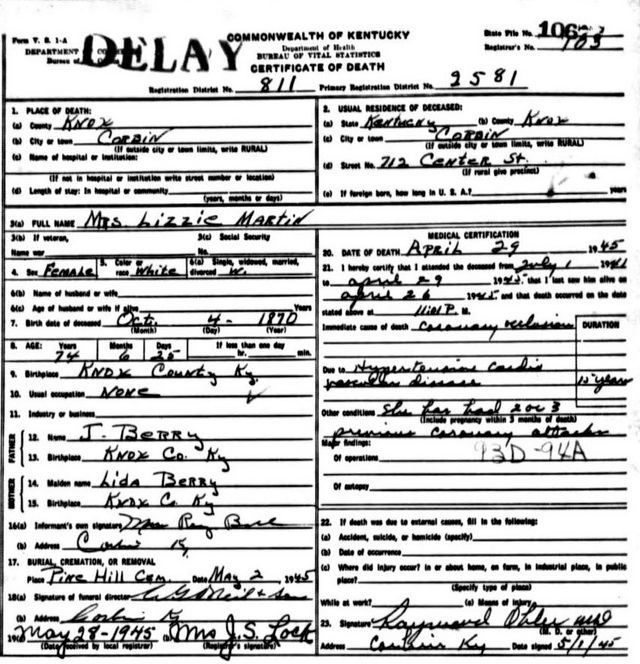 Form V. S. 1-A
DEPARTMENT
Bureau of
DELAY
COMMONWEALTH OF KENTUCKY
Department of Health
BUREAU OF VITAL STATISTICS
CERTIFICATE OF DEATH
State File No. 106
Registrar's No. 103
Registration District No. 811 Primary Registration District No. 2581
1. PLACE OF DEATH:
(a) County Knox
(b) City or town Corbin
(If outside city or town limits, write RURAL)
(c) Name of hospital or institution:
(If not in hospital or institution write street number or location)
(d) Length of stay: In hospital or community
(years, months or days)
2. USUAL RESIDENCE OF DECEASED:
(a) State Kentucky (b) County Knox
(c) City or town Corbin
(If outside city or town limits, write RURAL)
(d) Street No. 712 Center St.
(If rural give precinct)
(e) If foreign born, how long in U. S. A? years
3(a) FULL NAME Mrs Lizzie Martin
3(b) If veteran,
Name war
3(c) Social Security
No.
4. Sex Female
5. Color or
race White
6(a) Single, widowed, married,
divorced W.
6(b) Name of husband or wife
6(c) Age of husband or wife if alive Years
7. Birth date of deceased Oct. 4 - 1870
(Month) (Day) (Year)
8. AGE: Years Months Days If less than one day
74 6 25 hr. min.
9. Birthplace Knox County Ky.
10. Usual occupation None
11. Industry or business
FATHER
12. Name J. Berry
13. Birthplace Knox Co. Ky
MOTHER
14. Maiden name Lida Berry
15. Birthplace Knox Co Ky
16(a) Informant's own signature Mrs Ray
(b) Address Corbin Ky
17. BURIAL, CREMATION, OR REMOVAL
Place Pine Hill Cem. Date May 2 1945
18(a) Signature of funeral director & Son
(b) Address Corbin Ky
19(a) May 28-1945 (b) Mrs J. S. Lock
(Date received by local registrar) (Registrar's signature)
MEDICAL CERTIFICATION
20. DATE OF DEATH April 29 1945
21. I hereby certify that I attended the deceased from July 1 1941
to April 29 1945 that I last saw him alive on
April 26 1945 and that death occurred on the date
stated above at P. M.
Immediate cause of death Coronary occlusion
DURATION
Due to Hypertensive cardio
vascular disease 15 years
Other conditions She has had 2 or 3
(Include pregnancy within 3 months of death)
previous coronary attacks
Major findings:
Of operations 93D-94A
Of autopsy
22. If death was due to external causes, fill in the following:
(a) Accident, suicide, or homicide (specify)
(b) Date of occurrence
(c) Where did injury occur? In or about home, on farm, in industrial place, in public
place?
(Specify type of place)
While at work? (e) Means of injury
23. Signature Raymond
(M. D. or other)
Address Corbin Ky Date signed 5/1/45